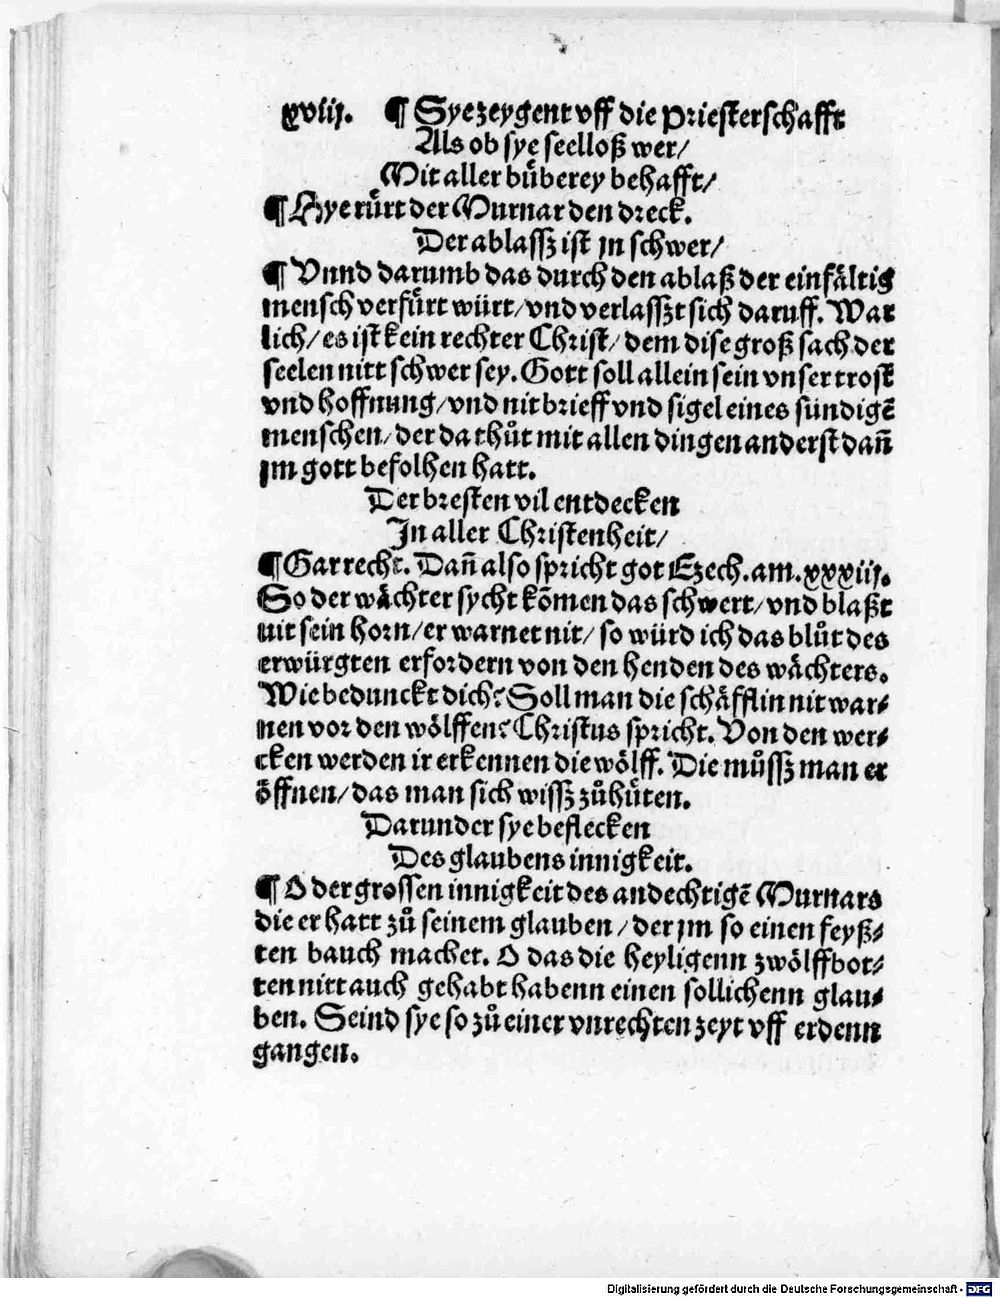 xviij. ¶ Sye zeygent vff die priesterschafft
Als ob sye seelloß wer/
Mit aller bůberey behafft/
¶ Hye růrt der Murnar den dreck.
Der ablassz ist jn schwer/
¶ Vnnd darumb das durch den ablaß der einfåltig
mensch verfůrt würt/vnd verlasszt sich daruff. War
lich/es ist kein rechter Christ/dem dise groß sach der
seelen nitt schwer sey. Gott soll allein sein vnser trost
vnd hoffnung/vnd nit brieff vnd sigel eines sündigẽ
menschen/der da thůt mit allen dingen anderst dañ
jm gott befolhen hatt.
Der bresten vil entdecken
In aller Christenheit/
¶ Gar recht. Dañ also spricht got Ezech. am. xxxiij.
So der wåchter sycht kõmen das schwert/vnd blaßt
nit sein horn/er warnet nit/so würd ich das blůt des
erwürgten erfordern von den henden des wåchters.
Wie bedunckt dich? Soll man die schåfflin nit war⸗
nen vor den wölffen? Christus spricht. Von den wer⸗
cken werden ir erkennen die wölff. Die můssz man er
öffnen/das man sich wissz zů hüten.
Darunder sye beflecken
Des glaubens innigkeit.
¶ O der grossen innigkeit des andechtigẽ Murnars
die er hatt zů seinem glauben/der jm so einen feyß⸗
ten bauch machet. O das die heyligenn zwölffbot⸗
ten nitt auch gehabt habenn einen sollichenn glau⸗
ben. Seind sye so zů einer vnrechten zeyt vff erdenn
gangen.
Digitalisierung gefördert durch die Deutsche Forschungsgemeinschaft - DFG